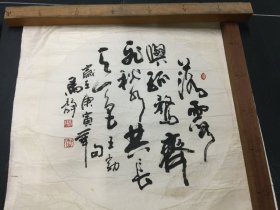 落霞
與孤鶩齊
飛秋水共長
天一色王勃
句
歲在庚寅